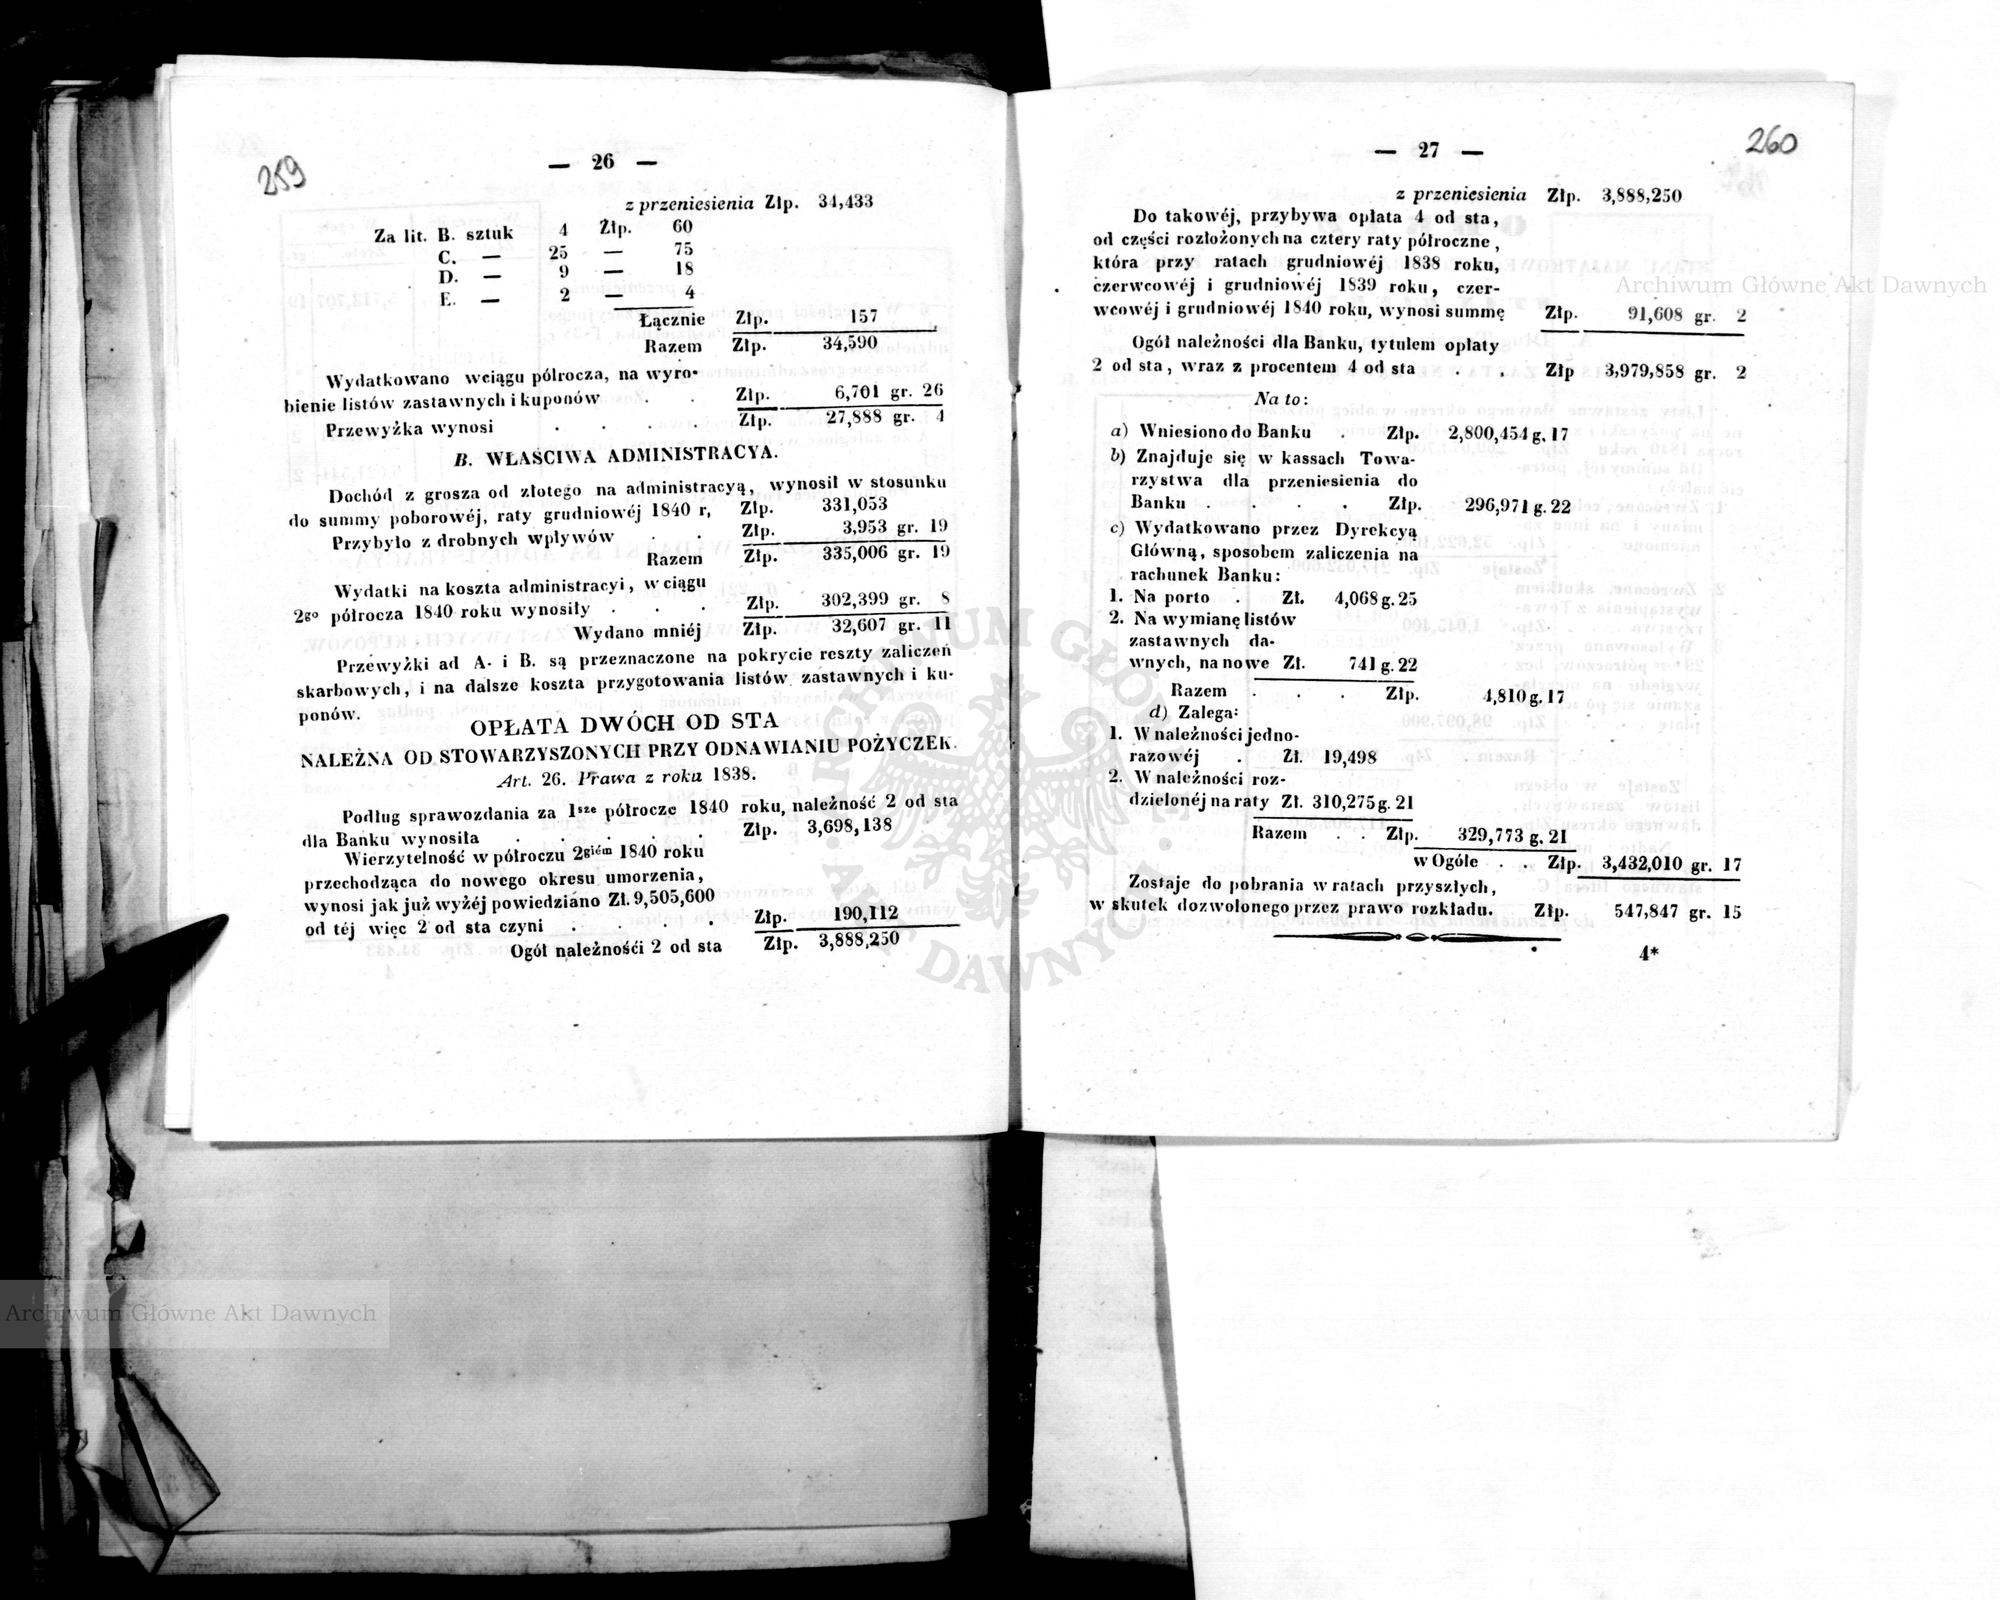 259
— 26 —
z przeniesienia Złp. 34,433
Za lit. B. sztuk 4 Złp. 60
C. — 25 — 75
D. — 9 — 18
E. — 2 — 4
Łącznie Złp. 157
Razem Złp. 34,590
Wydatkowano wciągu półrocza, na wyro-
bienie listów zastawnych i kuponów . . Złp. 6,701 gr. 26
Przewyżka wynosi . . . . Złp. 27,888 gr. 4
B. WŁAŚCIWA ADMINISTRACYA.
Dochód z grosza od złotego na administracyą, wynosił w stosunku
do summy poborowéj, raty grudniowéj 1840 r, Złp. 331,053
Przybyło z drobnych wpływów . . Złp. 3,953 gr. 19
Razem Złp. 335,006 gr. 19
Wydatki na koszta administracyi, w ciągu
2go półrocza 1840 roku wynosiły . . . Złp. 302,399 gr. 8
Wydano mniéj Złp. 32,607 gr. 11
Przewyżki ad A. i B. są przeznaczone na pokrycie reszty zaliczeń
skarbowych, i na dalsze koszta przygotowania listów zastawnych i ku-
ponów.
OPŁATA DWÓCH OD STA
NALEŻNA OD STOWARZYSZONYCH PRZY ODNAWIANIU POŻYCZEK.
Art. 26. Prawa z roku 1838.
Podług sprawozdania za 1sze półrocze 1840 roku, należność 2 od sta
dla Banku wynosiła . . . . . Złp. 3,698,138
Wierzytelność w półroczu 2giém 1840 roku
przechodząca do nowego okresu umorzenia,
wynosi jak już wyżéj powiedziano Zł. 9,505,600
od téj więc 2 od sta czyni . . . . Złp. 190,112
Ogół należnośći 2 od sta Złp. 3,888,250
260
— 27 —
z przeniesienia Złp. 3,888,250
Do takowéj, przybywa opłata 4 od sta,
od części rozłożonych na cztery raty półroczne,
która przy ratach grudniowéj 1838 roku,
czerwcowéj i grudniowéj 1839 roku, czer-
wcowéj i grudniowéj 1840 roku, wynosi summę Złp. 91,608 gr. 2
Ogół należności dla Banku, tytułem opłaty
2 od sta, wraz z procentem 4 od sta . . Złp 3,979,858 gr. 2
Na to:
a) Wniesiono do Banku . Złp. 2,800,454 g. 17
b) Znajduje się w kassach Towa-
rzystwa dla przeniesienia do
Banku . . . . Złp. 296,971 g. 22
c) Wydatkowano przez Dyrekcyą
Główną, sposobem zaliczenia na
rachunek Banku:
1. Na porto . Zł. 4,068 g. 25
2. Na wymianę listów
zastawnych da-
wnych, na nowe Zł. 741 g. 22
Razem . . . Złp. 4,810 g. 17
d) Zalega:
1. W należności jedno-
razowéj . Zł. 19,498
2. W należności roz-
dzielonéj na raty Zł. 310,275 g. 21
Razem . . Złp. 329,773 g. 21
w Ogóle . . Złp. 3,432,010 gr. 17
Zostaje do pobrania w ratach przyszłych,
w skutek dozwolonego przez prawo rozkładu. Złp. 547,847 gr. 15
4*
Archiwum Główne Akt Dawnych
Archiwum Główne Akt Dawnych
ARCHIWUM GŁÓWNE
AKT DAWNYCH